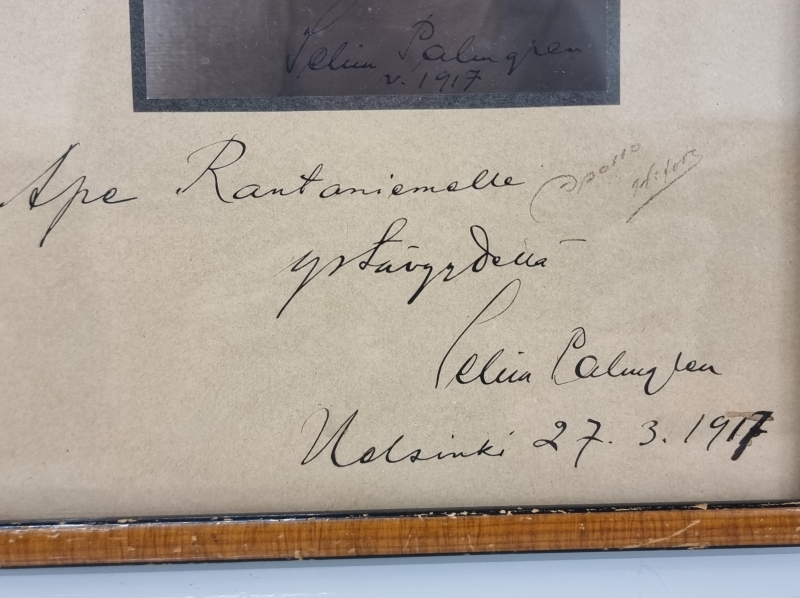 Selim Palmgren
v. 1917
Ape Rantaniemelle
ystävyydellä
Selim Palmgren
Helsinki 27. 3. 1917